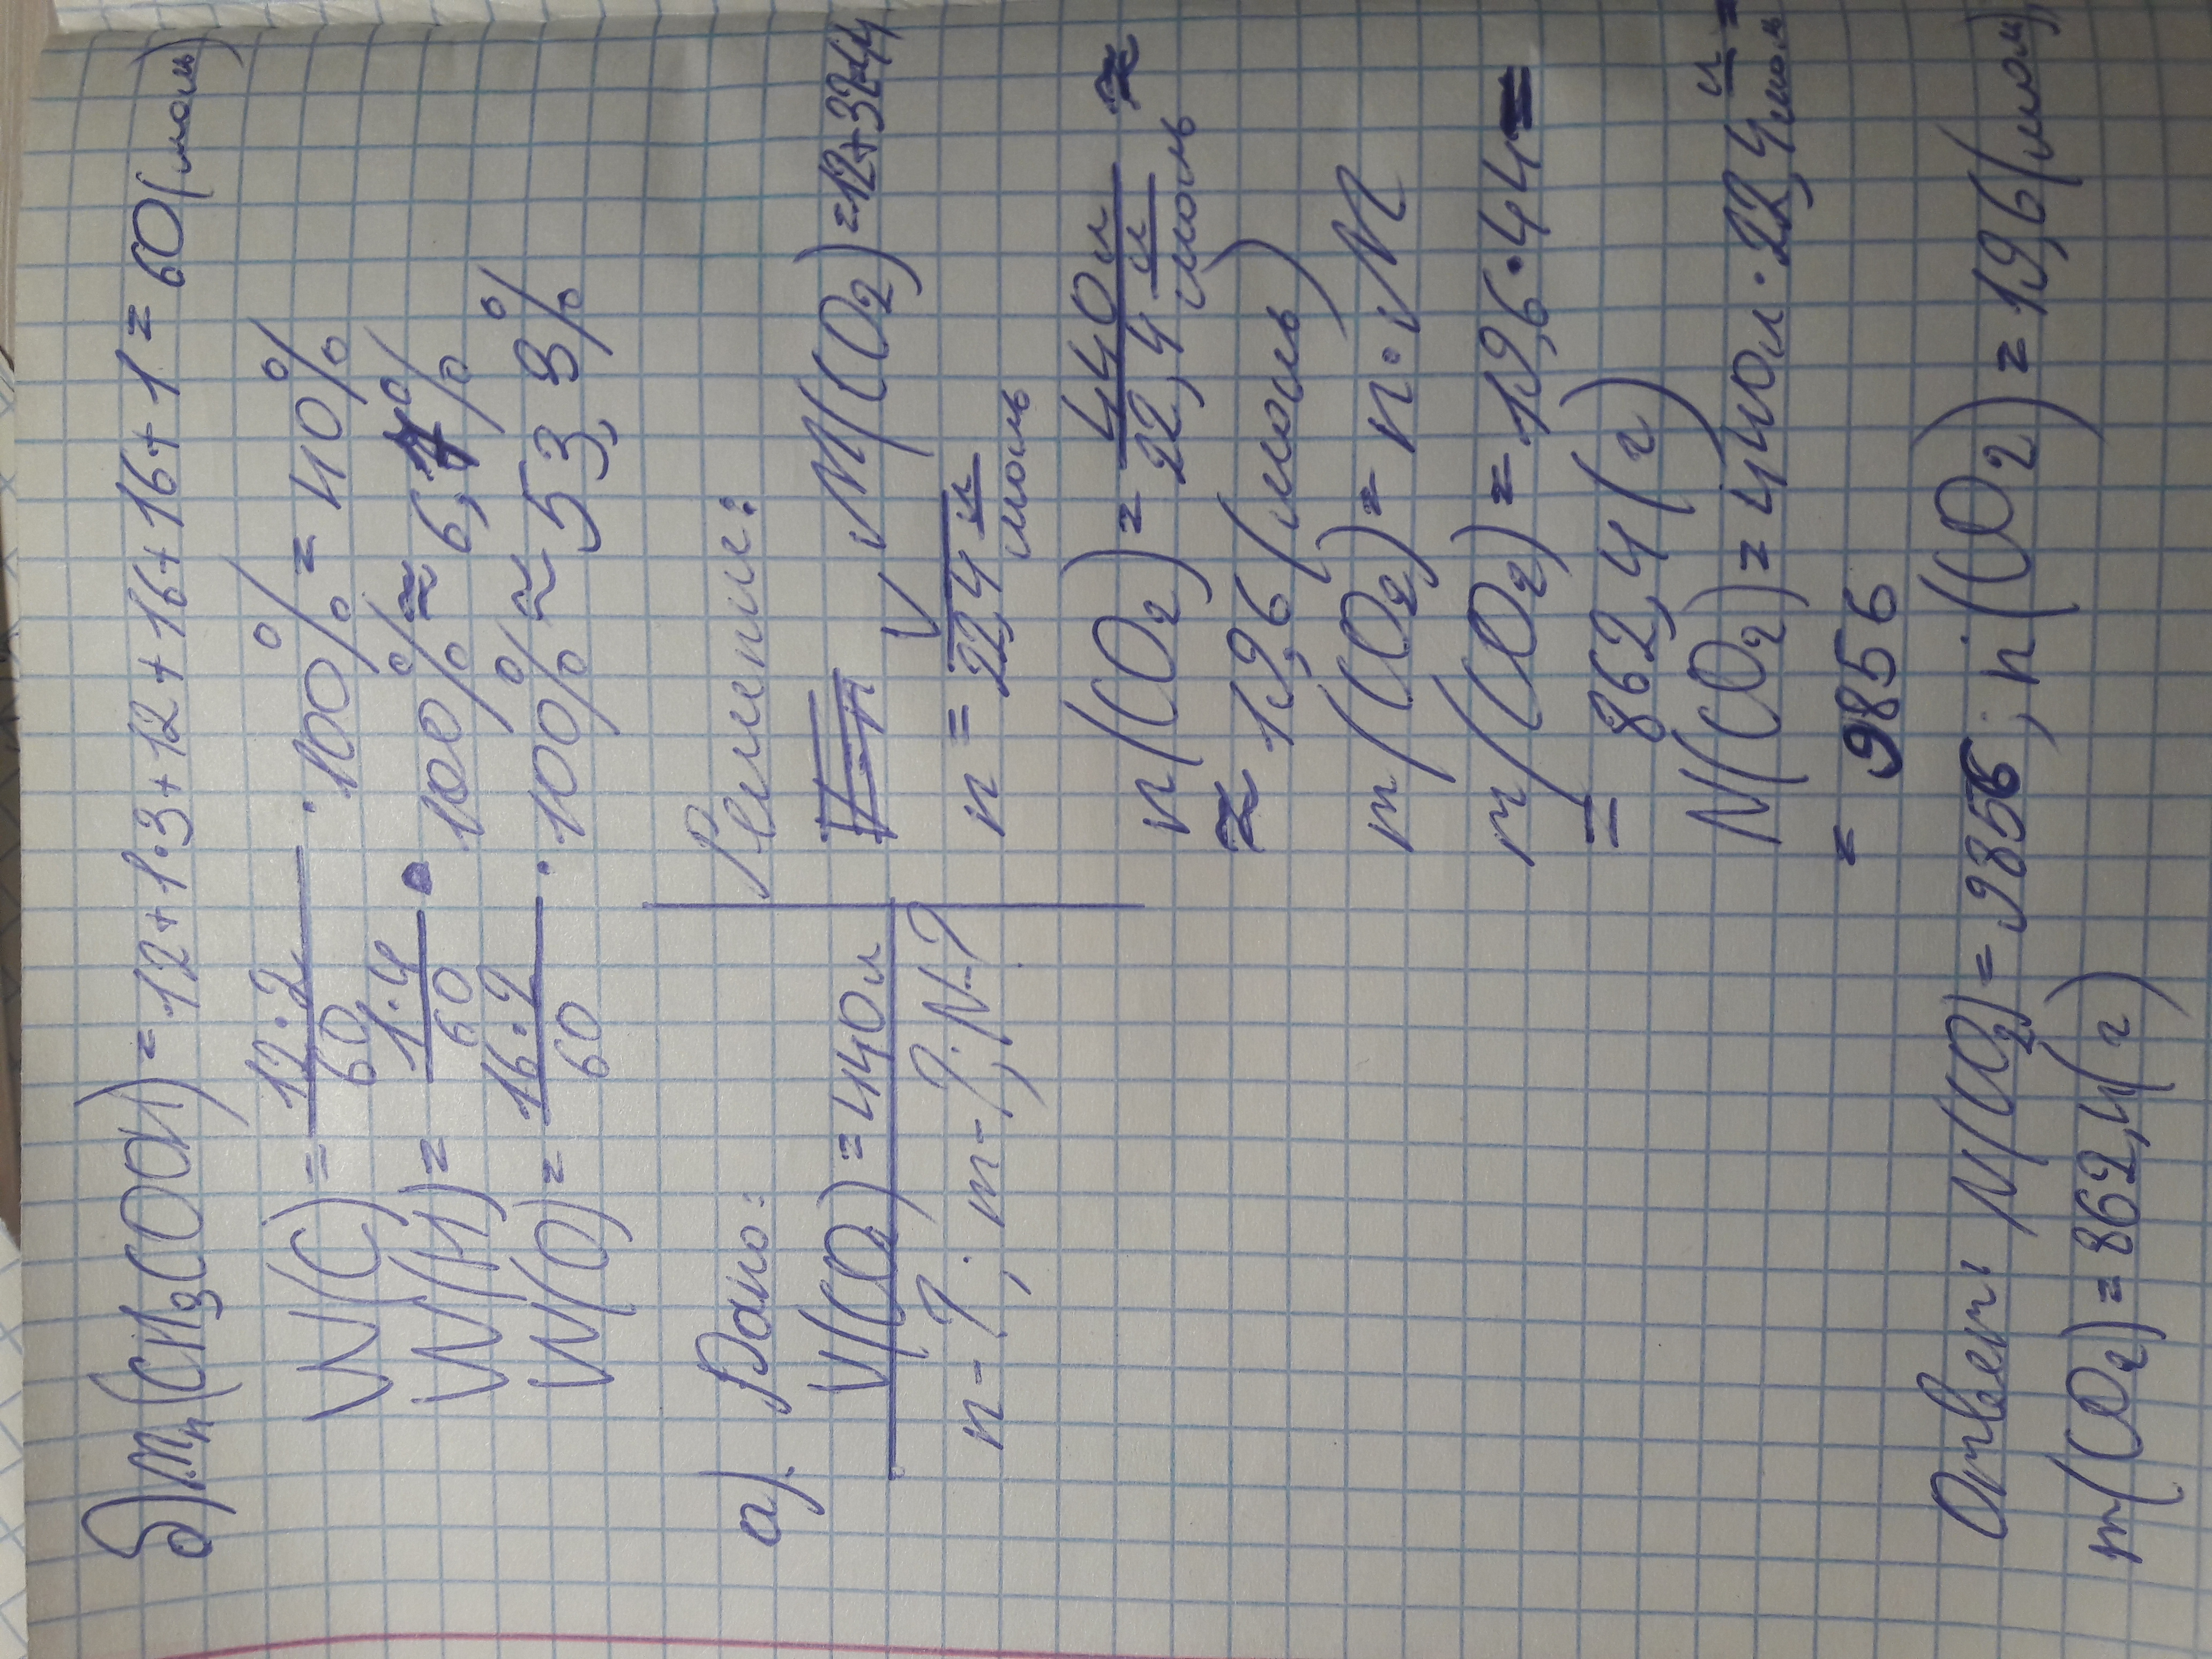 б) Mr(CH3COOH) = 12+1·3+12+16+16+1= 60(моль)
W(C) = 12·2/60 · 100% = 40%
W(H) = 1·4/60 · 100% ≈ 6,7%
W(O) = 16·2/60 · 100% ≈ 53,3%
а). Дано:
V(CO2) = 440л
n-?; m-?; N-?
Решение:
M(CO2) =12+32=44
n = V/22,4 л/моль
n(CO2) = 440л/22,4 л/моль ≈
≈ 19,6 (моль)
m(CO2) = n·M
m(CO2) = 19,6·44=
= 862,4(г)
N(CO2) = 440л·22,4 л/моль =
= 9856
Ответ: N(CO2) = 9856; n(CO2) = 19,6(моль);
m(CO2) = 862,4(г)